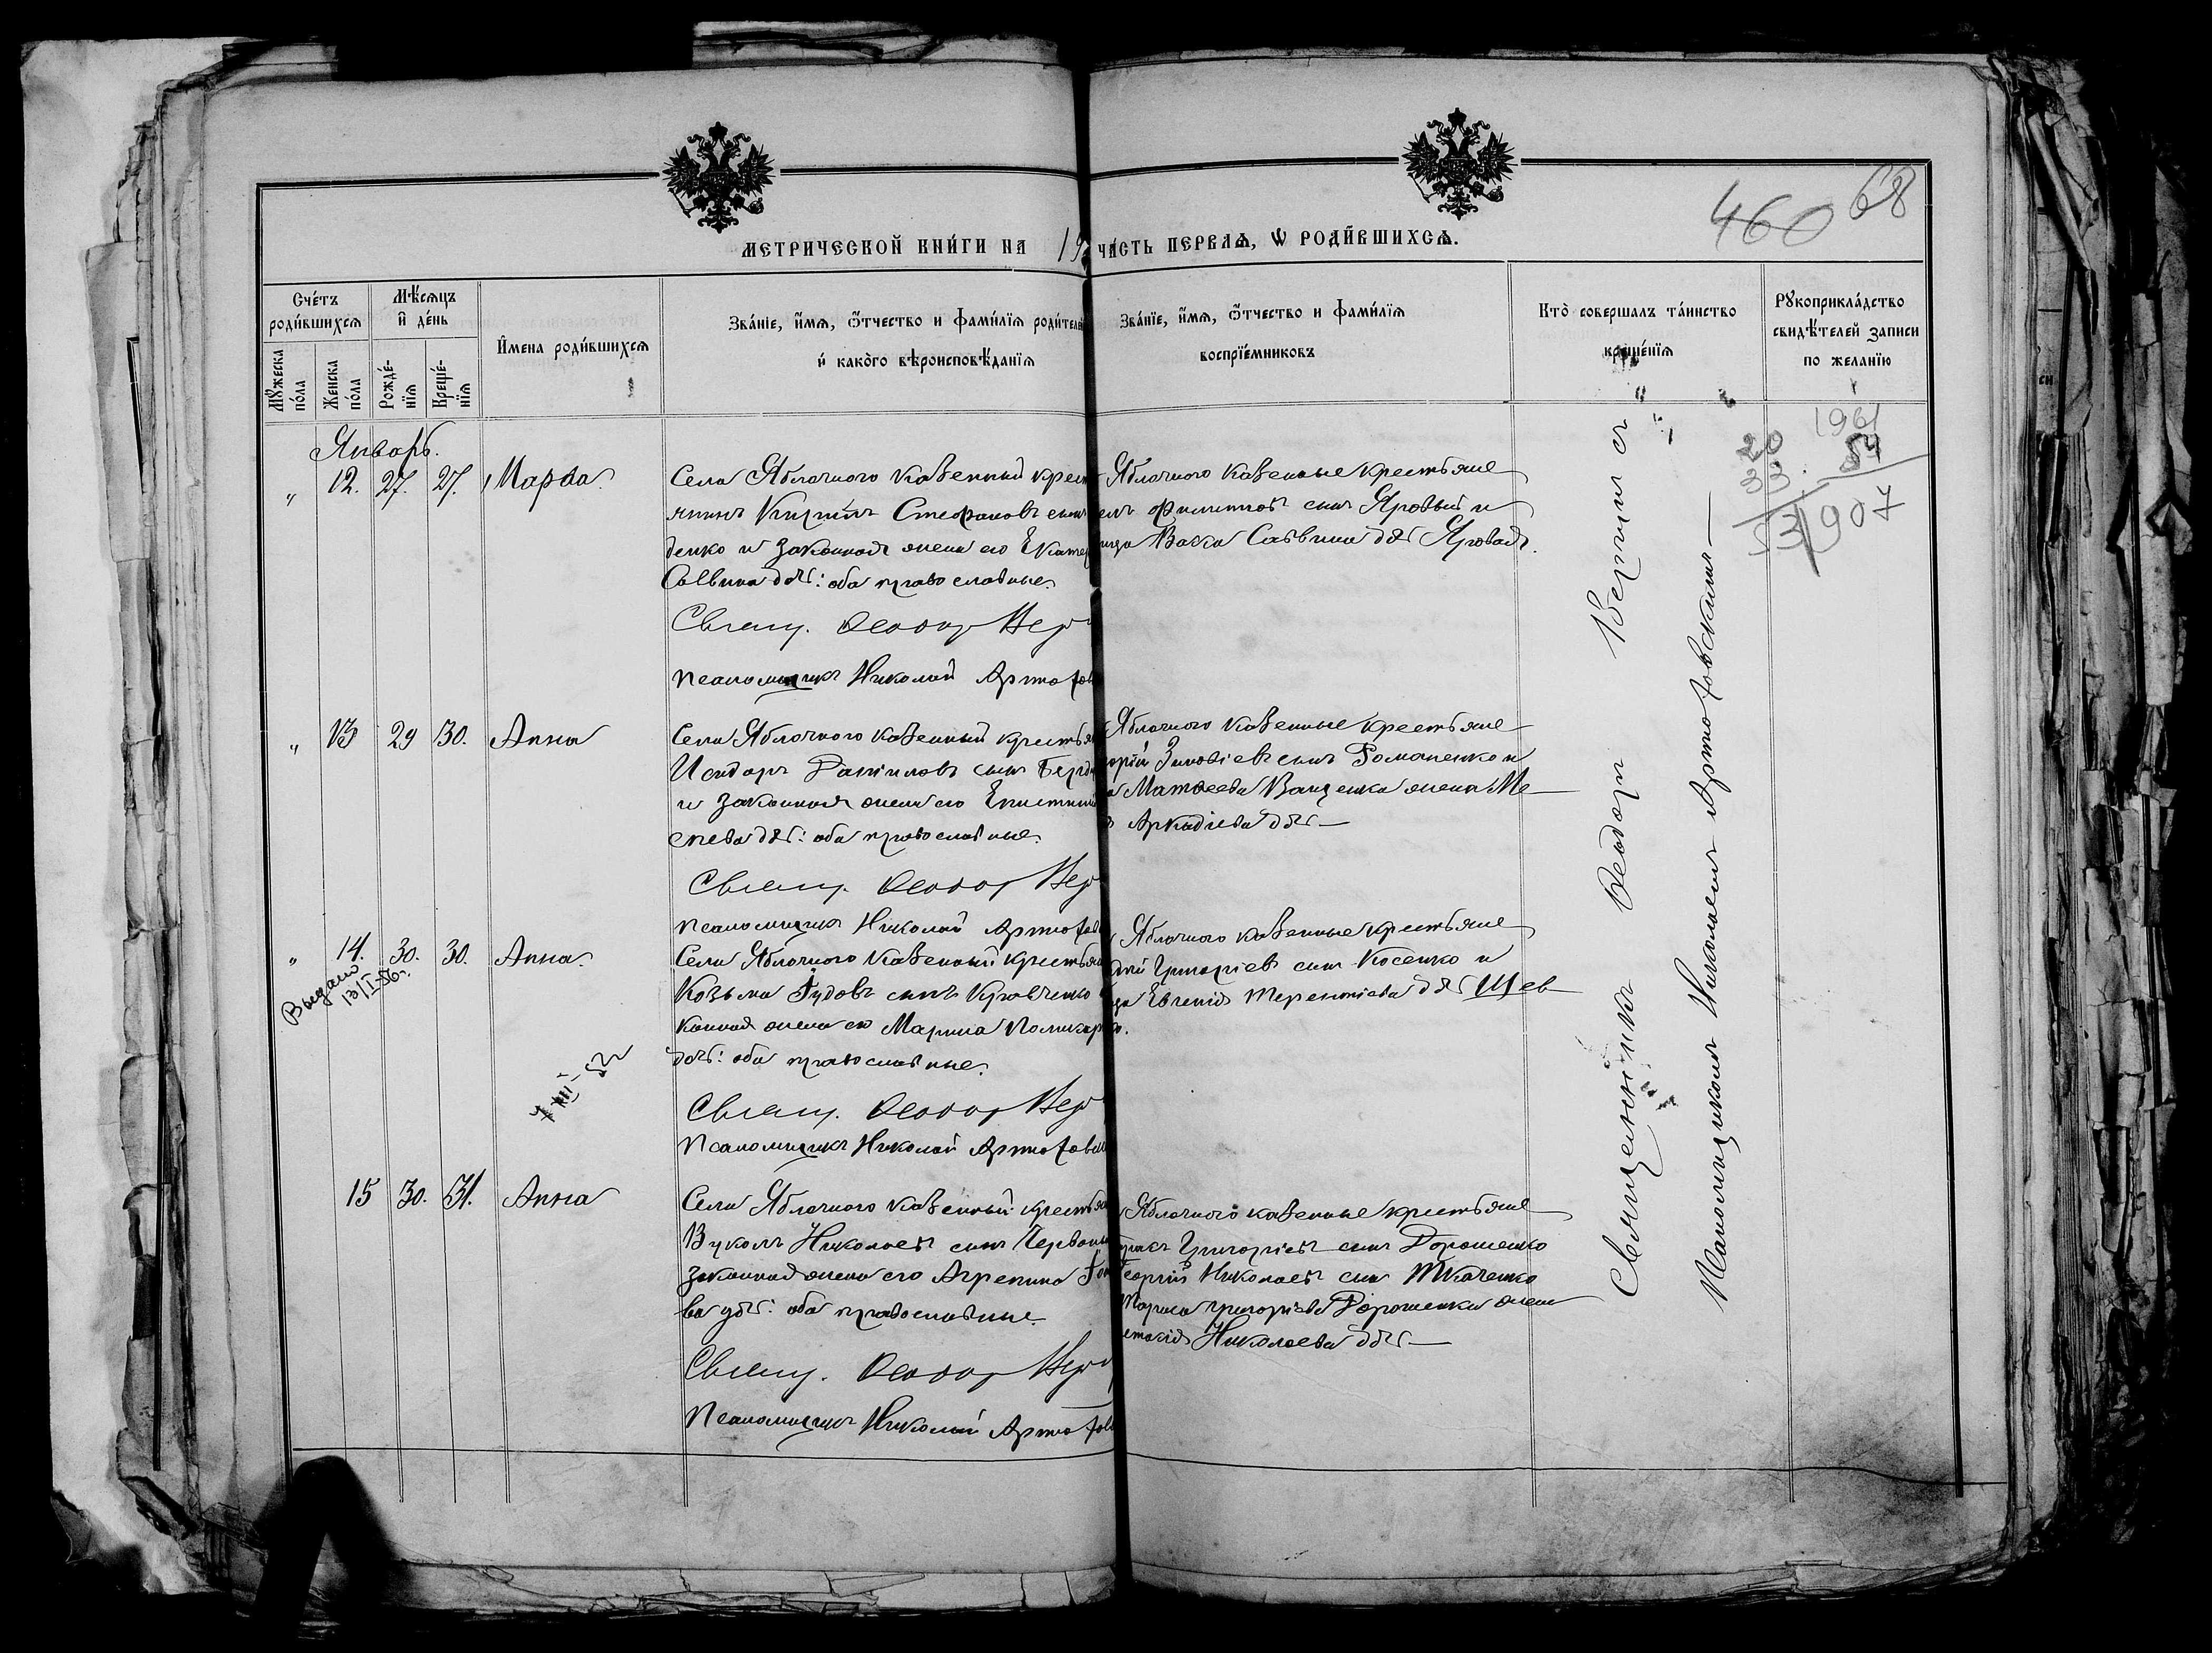 460 68
МЕТРИЧЕСКОЙ КНИ́ГИ НА 19
ЧА́СТЬ ПЕРВАѦ, Ѡ҆ РОДИ́ВШИХСѦ.
Сче́тъ роди́вшихсѧ
Мꙋ́жеска по́ла
Же́нска по́ла
Мѣ́сѧцъ и҆ де́нь
Рожде́-нїѧ
Креще́-нїѧ
И҆мена̀ роди́вшихсѧ
Зва́нїе, и҆́мѧ, ѻ҆́тчество и фами́лїѧ роди́телей
и҆ како́го вѣроисповѣ́данїѧ
Зва́нїе, и҆́мѧ, ѻ҆́тчество и фами́лїѧ
воспрїе́мниковъ
Кто̀ соверша́лъ та́инство
креще́нїѧ
Рꙋкоприкла́дство
свидѣ́телей записи
по жела́нїю
Январь.
„ 12. 27. 27. Марѳа.
Села Яблочного казенный крест
янинъ Кириллъ Стефановъ сынъ
денко и законная жена его Екате
Саввина дочь: оба православные.
Свящ. Ѳеодор Вер
Псаломщикъ Николай Артюхов
Яблочного казенные крестьяне
Филиппов сын Яровый и
Васса Саввина дочь Яровая.
1961
54
1907
20
33
53
„ 13 29 30. Анна
Села Яблочного казенный крестья
Исидоръ Даніиловъ сынъ
и законная жена его
дочь: оба православные.
Свящ. Ѳеодор Вер
Псаломщикъ Николай Артюхов
Яблочного казенные крестьяне
Зиновіевъ сынъ Романенко и
Матѳеева жена Ме
Аркадіева дочь —
„ 14. 30. 30. Анна.
Выдано
13/I-56г.
XII-52г
Села Яблочного казенный крестья
Козьма сынъ Кравченко
конная жена его Марина Поликар
дочь: оба православные.
Свящ. Ѳеодор Вер
Псаломщикъ Николай Артюхов
Яблочного казенные крестьяне
Григоріев сын Косенко и
Евгенія Терентіева дочь Шев
15 30. 31. Анна
Села Яблочного казенный крестья
Вуколъ Николаев сын Червон
законная жена его Агрепина
ва дочь: оба православные.
Свящ. Ѳеодор Вер
Псаломщикъ Николай Артюхов
Яблочного казенные крестьяне
Григоріев сын Дорошенко
Георгій Николаев сын Ткаченко
Марина Григоріева Дорошенки жена
Николаева дочь —
Священникъ Ѳеодор съ
Псаломщикомъ Николаемъ Артюховскимъ —